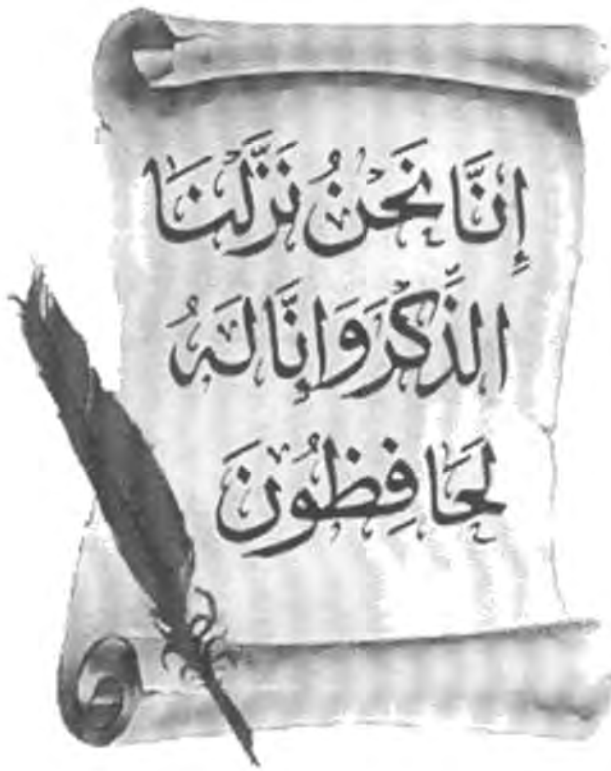 إِنَّا نَحْنُ نَزَّلْنَا
الذِّكْرَ وَإِنَّا لَهُ
لَحَافِظُونَ